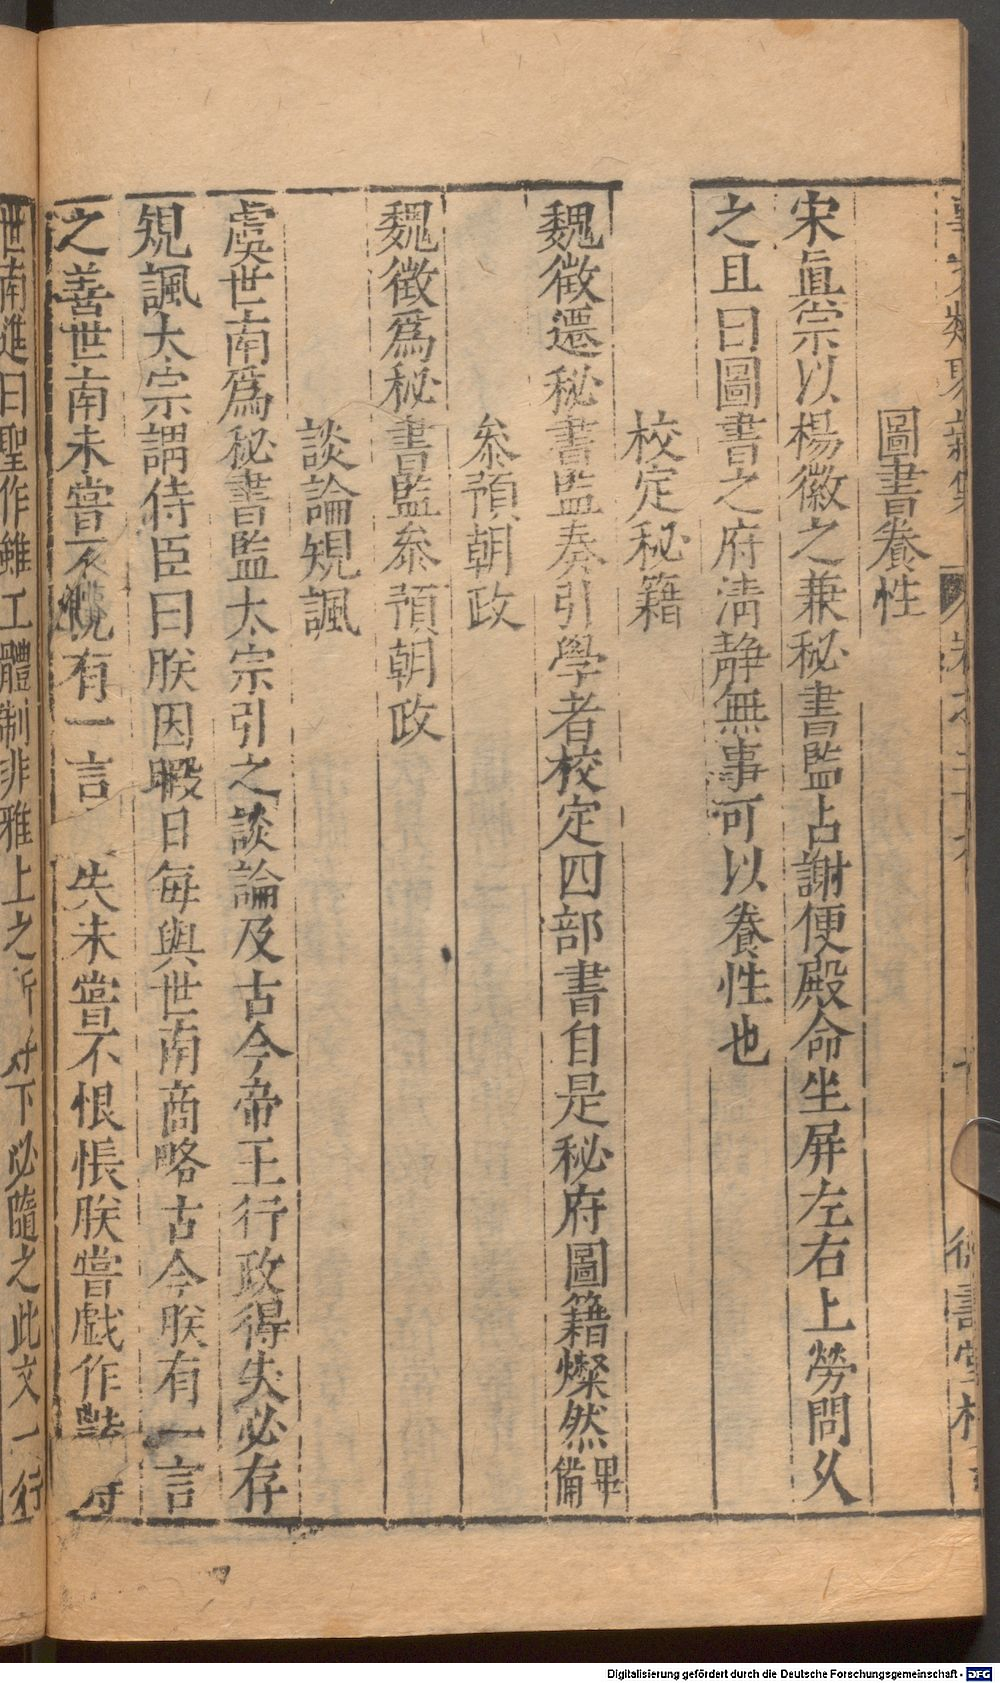 圖書養性
宋眞宗以楊徽之兼秘書監占謝便殿命坐屏左右上勞問久
之且曰圖書之府清靜無事可以養性也
校定秘籍
魏徵遷秘書監奏引學者校定四部書自是秘府圖籍燦然畢備
叅預朝政
魏徵爲秘書監叅預朝政
談論規諷
虞世南爲秘書監太宗引之談論及古今帝王行政得失必存
規諷太宗謂侍臣曰朕因暇日每與世南商略古今朕有一言
之善世南未嘗不悅有一言失未嘗不恨悵朕嘗戲作
世南進曰聖作雖工體制非雅上之所下必隨之此文一行
Digitalisierung gefördert durch die Deutsche Forschungsgemeinschaft - DFG